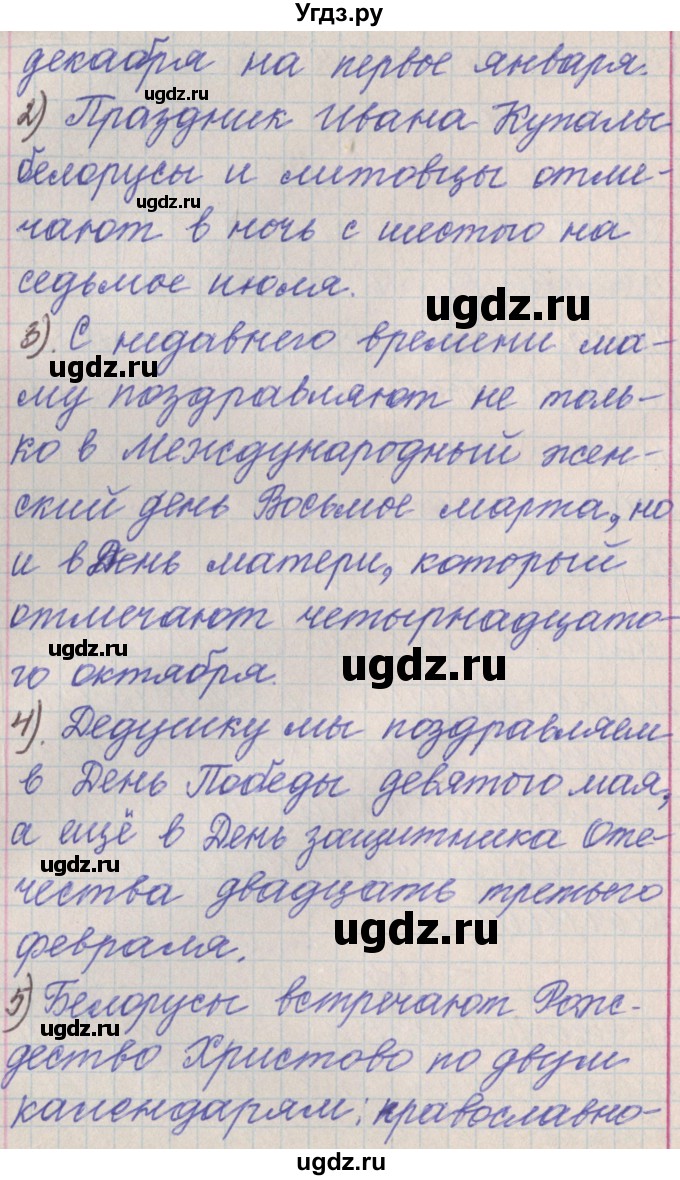 Угдз.ру
декабря на первое января.
ugdz.ru
2) Праздник Ивана Купалы
белорусы и литовцы отме-
ugdz.ru
чают в ночь с шестого на
седьмое июля.
ugdz.ru
3). С недавнего времени ма-
ugdz.ru
му поздравляют не толь-
ко в Международный жен-
ский день Восьмое марта, но
и в День матери, который
отмечают четырнадцато-
ugdz.ru
го октября.
ugdz.ru
4). Дедушку мы поздравляем
в День Победы девятого мая,
а ещё в День защитника Оте-
ugdz.ru
чества двадцать третьего
ugdz.ru
февраля.
5) Белорусы встречают Рож-
ugdz.ru
дество Христово по двум
календарям: православно-
ugdz.ru